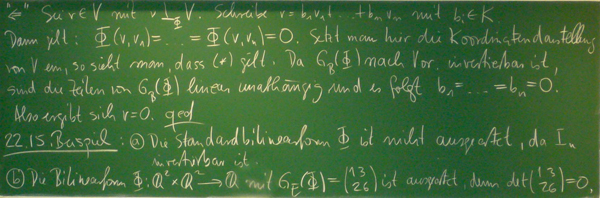 "⇐" Sei v∈V mit v ⊥_Φ V. Schreibe v = b₁v₁+...+bₙvₙ mit bᵢ∈K
Dann gilt: Φ(v,v₁)=...=Φ(v,vₙ)=0. Setzt man hier die Koordinatendarstellung
von v ein, so sieht man, dass (*) gilt. Da G_B(Φ) nach Vor. invertierbar ist,
sind die Zeilen von G_B(Φ) linear unabhängig und es folgt b₁=...=bₙ=0.
Also ergibt sich v=0. qed
22.15. Beispiel: ⓐ Die Standardbilinearform Φ ist nicht ausgeartet, da Iₙ
invertierbar ist.
ⓑ Die Bilinearform Φ: Q²×Q² → Q mit G_E(Φ)=(1 3 / 2 6) ist ausgeartet, denn det(1 3 / 2 6)=0,